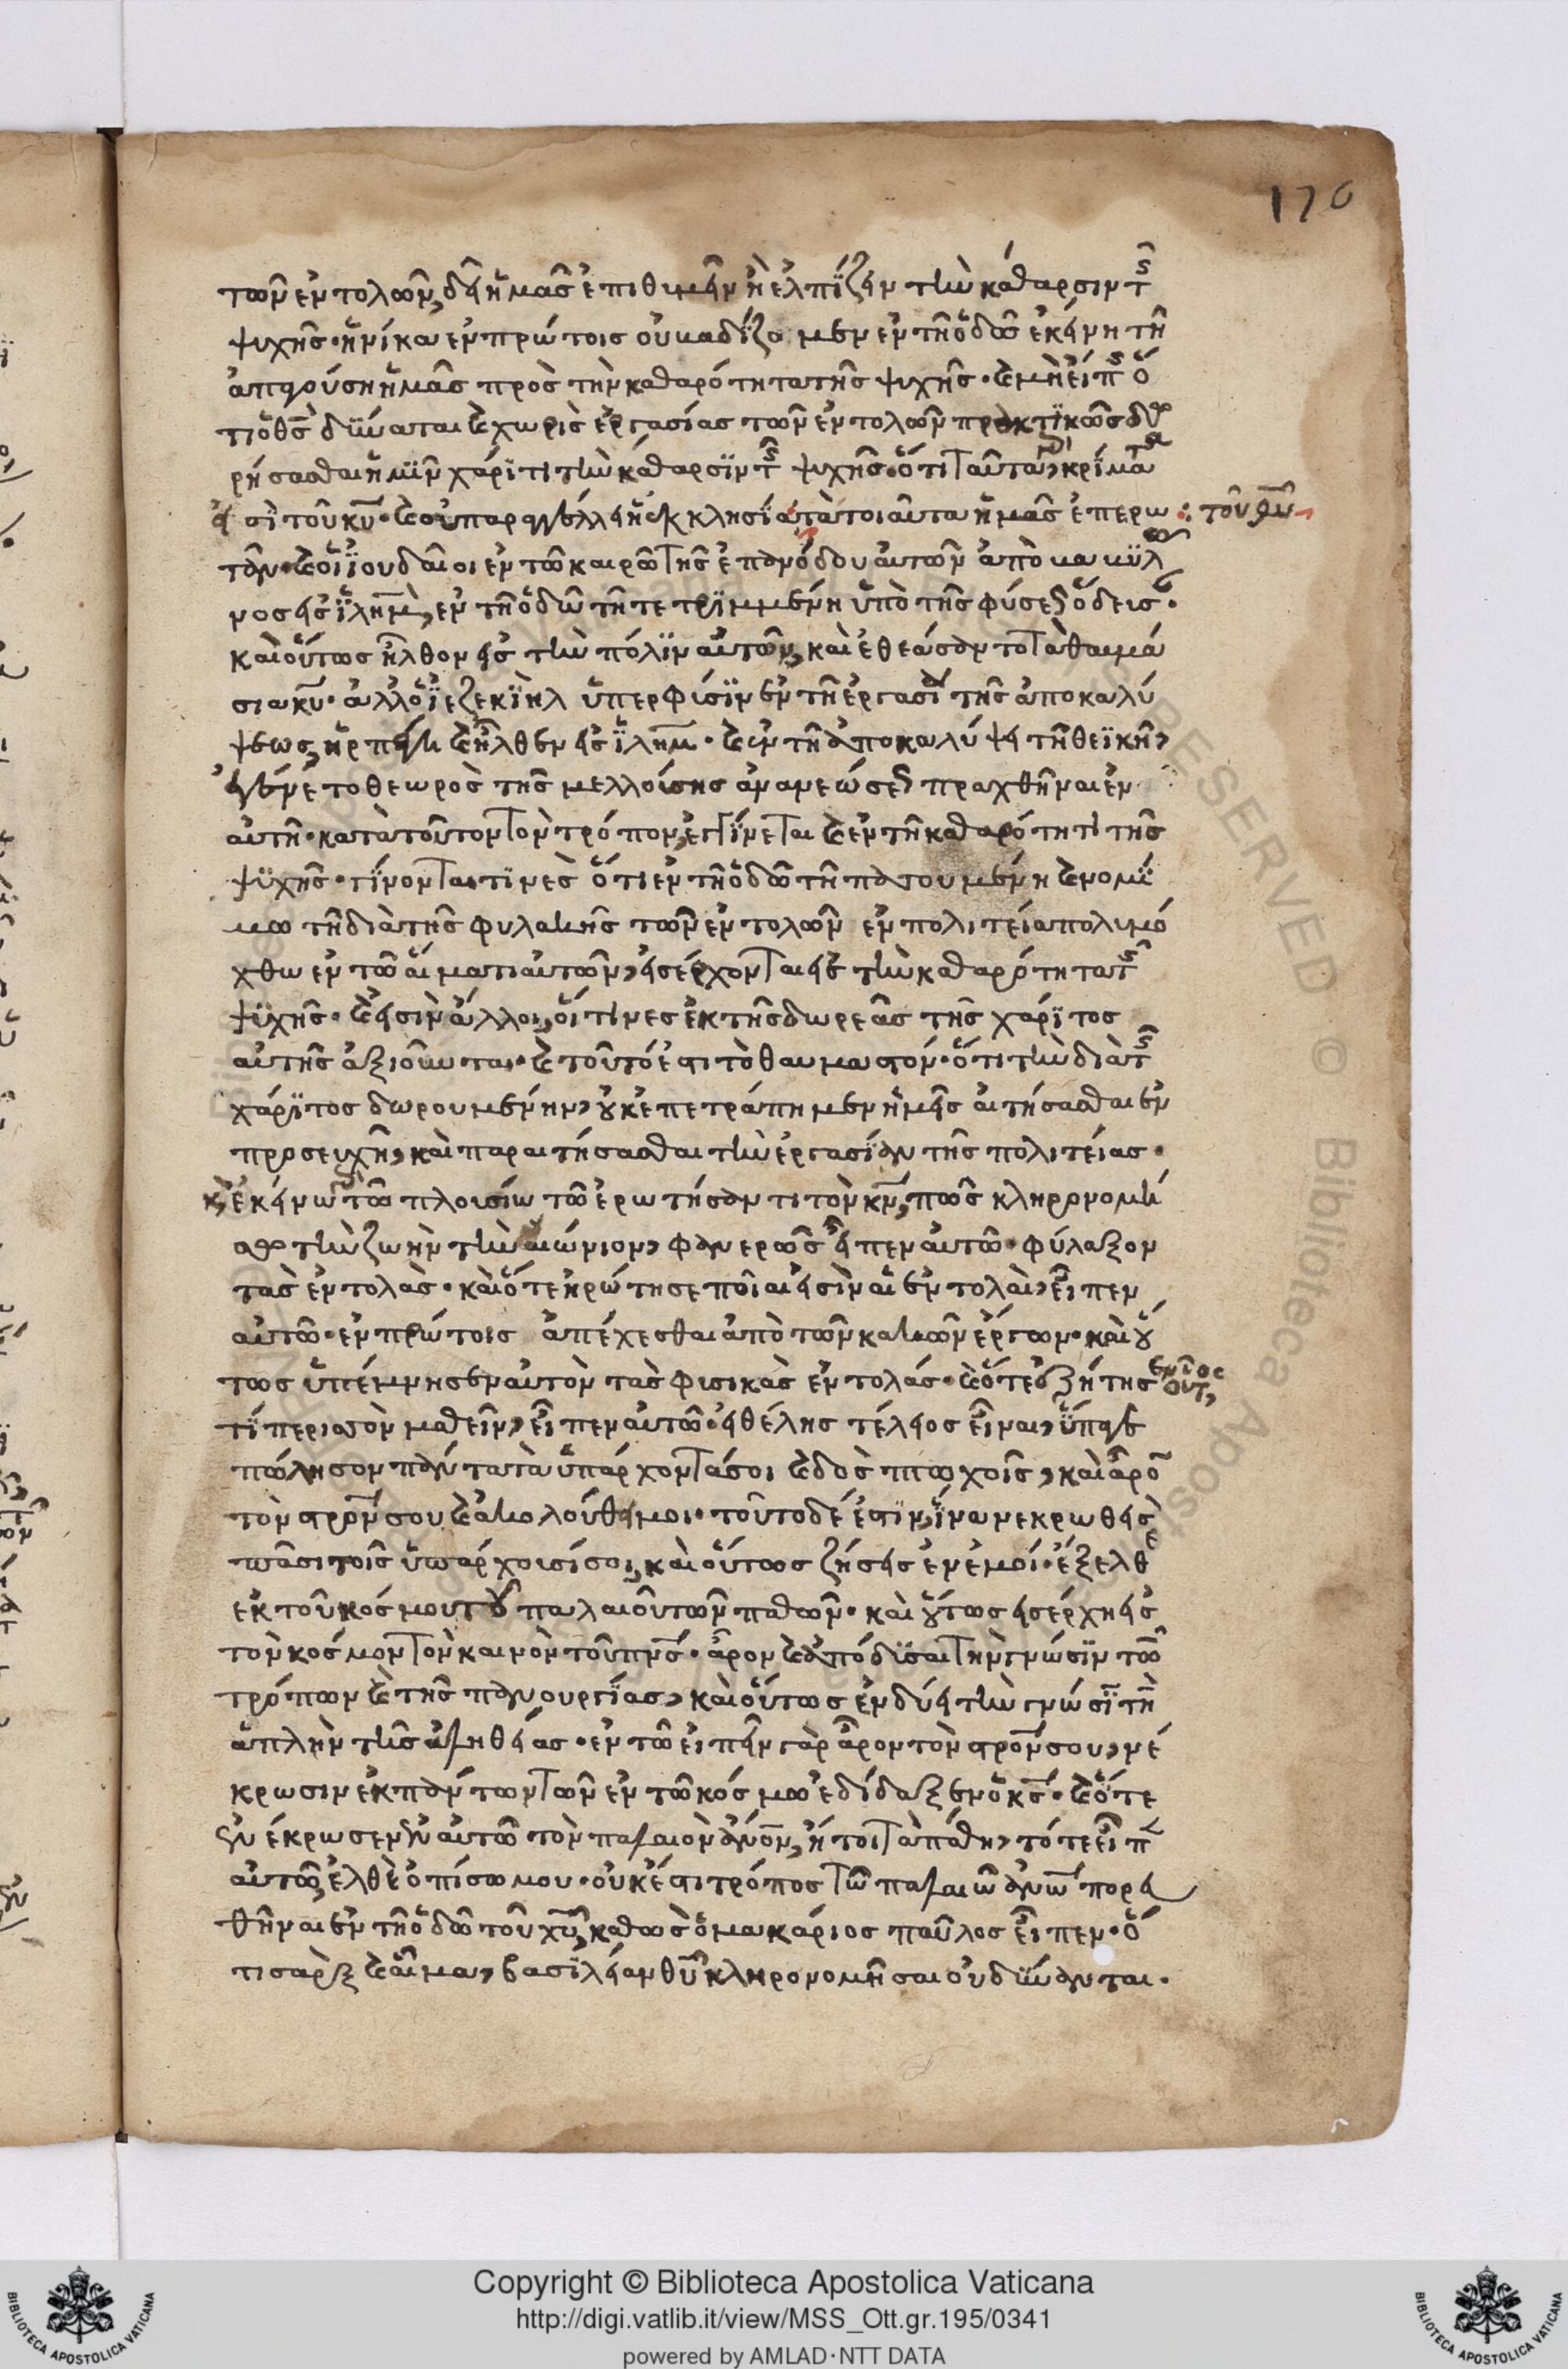 170
τῶν ἐντολῶν, δεῖ ἡμᾶς ἐπιθυμεῖν ἢ ἐλπίζειν τὴν κάθαρσιν τῆς
ψυχῆς· ἡνίκα ἐν πρώτοις οὐ βαδίζομεν ἐν τῇ ὁδῷ ἐκείνῃ τῇ
ἀπαγούσῃ ἡμᾶς πρὸς τὴν καθαρότητα τῆς ψυχῆς· καὶ μὴ εἴπῃς ὅ
τι ὁ θς δύναται καὶ χωρὶς ἐργασίας τῶν ἐντολῶν πρακτικῶς δω
ρήσασθαι ἡμῖν χάριτι τὴν κάθαρσιν τῆς ψυχῆς· ὅτι ταῦτα κρίματα
εἰσὶ τοῦ κυ· καὶ οὐ παραγγέλλει ἡ ἐκκλησία τὰ τοιαῦτα ἡμᾶς ἐπερω : τὸν θν
τᾶν· καὶ οἱ ἰουδαῖοι ἐν τῷ καιρῷ τῆς ἐπανόδου αὐτῶν ἀπὸ βαβυλῶ
νος εἰς ἱλημ, ἐν τῇ ὁδῷ τῇ τετριμμένῃ ὑπὸ τῆς φύσεως ὥδευσαν·
καὶ οὕτως ἦλθον εἰς τὴν πόλιν αὐτῶν, καὶ ἐθεάσαντο τὰ θαυμά
σια κυ· ἀλλ' ὁ ἰεζεκιὴλ ὑπερφύσιν ἐν τῇ ἐργασίᾳ τῆς ἀποκαλύ
ψεως, ἡρπάγη καὶ ἦλθεν εἰς ἱλημ· καὶ ἐν τῇ ἀποκαλύψει τῇ θεϊκῇ,
ἐγένετο θεωρὸς τῆς μελλούσης ἀνανεώσεως πραχθῆναι ἐν
αὐτῇ· κατὰ τοῦτον τὸν τρόπον, γίνεται καὶ ἐν τῇ καθαρότητι τῆς
ψυχῆς· γίνονται τινὲς ὅτι ἐν τῇ ὁδῷ τῇ πατουμένῃ καὶ νομί
μω τῇ διὰ τῆς φυλακῆς τῶν ἐντολῶν ἐν πολιτεία πολυμό
χθω ἐν τῷ αἵματι αὐτῶν, εἰσέρχονται εἰς τὴν καθαρότητα τῆς
ψυχῆς· καὶ εἰσὶν ἄλλοι, οἵτινες ἐκ τῆς δωρεᾶς τῆς χάριτος
αὐτῆς ἀξιοῦνται· καὶ τοῦτό ἐστι τὸ θαυμαστόν· ὅτι τὴν διὰ τῆς
χάριτος δωρουμένην, οὐκ ἐπετράπημεν ἡμεῖς αἰτήσασθαι ἐν
προσευχῇ, καὶ παραιτήσασθαι τὴν ἐργασίαν τῆς πολιτείας·
καὶ ἐκείνω γὰρ τῷ πλουσίω τῷ ἐρωτήσαντι τὸν κν, πῶς κληρονομή
σω τὴν ζωὴν τὴν αἰώνιον, φανερῶς εἶπεν αὐτῷ· φύλαξον
τὰς ἐντολάς· καὶ ὅτε ἠρώτησε ποῖαι εἰσὶν αἱ ἐντολαὶ, εἶπεν
αὐτῷ· ἐν πρώτοις ἀπέχεσθαι ἀπὸ τῶν κακῶν ἔργων· καὶ οὕ
τως ὑπέμνησεν αὐτὸν τὰς φυσικὰς ἐντολάς· καὶ ὅτε ἐζήτησεν
τὶ περισσὸν μαθεῖν, εἶπεν αὐτῷ· εἰ θέλεις τέλειος εἶναι, ὕπαγε
πώλησον πάντα τὰ ὑπάρχοντά σοι καὶ δὸς πτωχοῖς, καὶ ἆρον
τὸν στρον σου καὶ ἀκολούθει μοι· τοῦτο δέ ἐστιν, ἵνα νεκρωθεὶς
πᾶσι τοῖς ὑπάρχουσί σοι, καὶ οὕτως ζήσεις ἐν ἐμοί· ἔξελθε
ἐκ τοῦ κόσμου τοῦ παλαιοῦ τῶν παθῶν· καὶ οὕτως εἰσέρχῃ εἰς
τὸν κόσμον τὸν καινὸν τοῦ πνς· ἆρον καὶ ἀπόδυσαι τὴν γνῶσιν τῶν
τρόπων καὶ τῆς πανουργίας, καὶ οὕτως ἐνδύει τὴν γνῶσιν τὴν
ἁπλὴν τῆς ἀληθείας· ἐν τῷ εἰπεῖν γὰρ ἆρον τὸν στρον σου, νέ
κρωσιν ἐκ πάντων τῶν ἐν τῷ κόσμω ἐδίδαξεν ὁ κς· καὶ ὅτε
ἐνέκρωσεν ἐν αὐτῷ τὸν παλαιὸν ἄνον, ἤτοι τὰ πάθη, τότε εἶπεν
αὐτῷ, ἐλθὲ ὀπίσω μου· οὐκ ἔστι τρόπος τῷ παλαιῷ ἀνω πορευ
θῆναι ἐν τῇ ὁδῷ τοῦ χυ, καθὼς ὁ μακάριος παῦλος εἶπεν· ὅ
τι σὰρξ καὶ αἷμα, βασιλείαν θυ κληρονομῆσαι οὐ δύνανται·
Copyright © Biblioteca Apostolica Vaticana
http://digi.vatlib.it/view/MSS_Ott.gr.195/0341
powered by AMLAD·NTT DATA
BIBLIOTECA APOSTOLICA VATICANA
BIBLIOTECA APOSTOLICA VATICANA